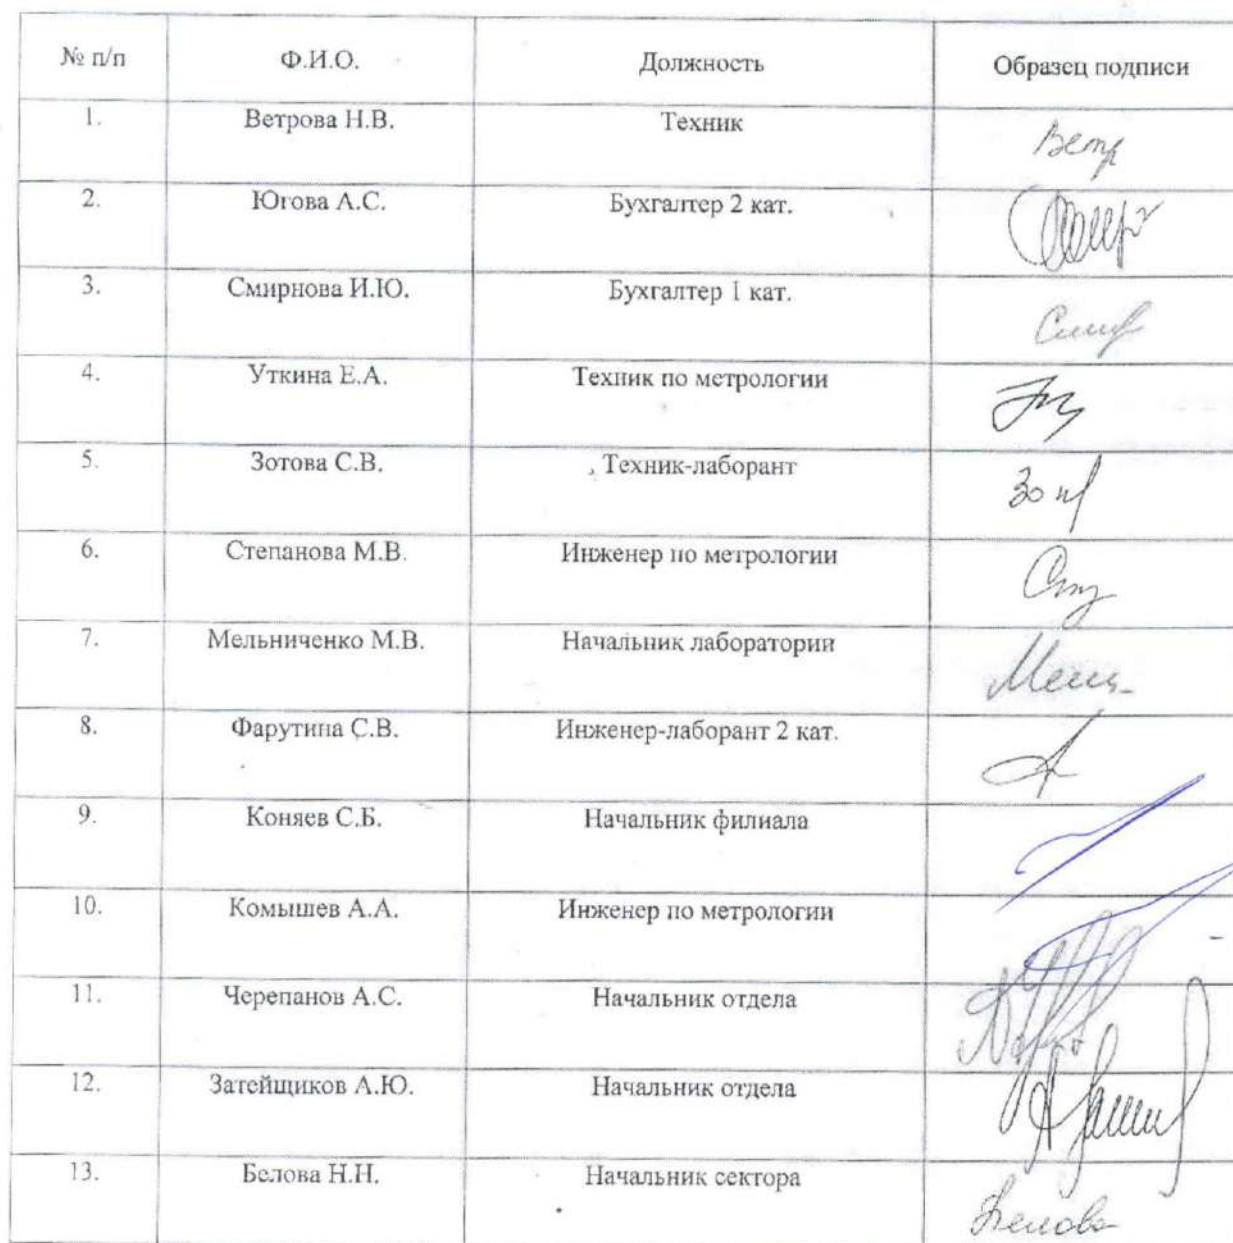 № п/п Ф.И.О. Должность Образец подписи
1. Ветрова Н.В. Техник Ветр
2. Югова А.С. Бухгалтер 2 кат.
3. Смирнова И.Ю. Бухгалтер 1 кат.
4. Уткина Е.А. Техник по метрологии
5. Зотова С.В. Техник-лаборант
6. Степанова М.В. Инженер по метрологии
7. Мельниченко М.В. Начальник лаборатории
8. Фарутина С.В. Инженер-лаборант 2 кат.
9. Коняев С.Б. Начальник филиала
10. Комышев А.А. Инженер по метрологии
11. Черепанов А.С. Начальник отдела
12. Затейщиков А.Ю. Начальник отдела
13. Белова Н.Н. Начальник сектора Белова